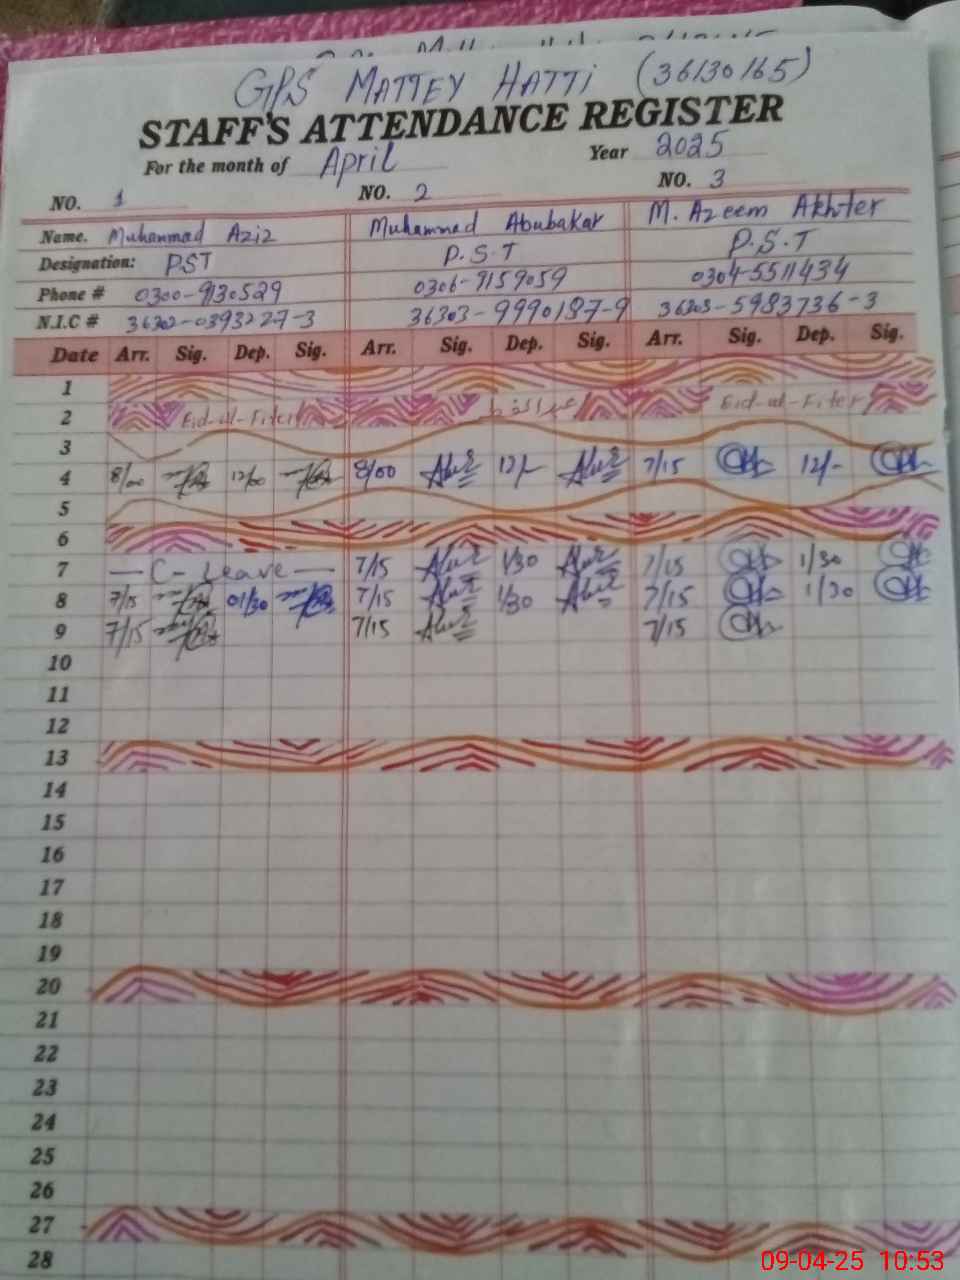 GPS MATTEY HATTI (36130165)
STAFF'S ATTENDANCE REGISTER
For the month of April Year 2025
NO. 1 NO. 2 NO. 3
Name. Muhammad Aziz Muhammad Abubakar M. Azeem Akhter
Designation: PST P.S.T P.S.T
Phone # 0300-9130529 0306-9159059 0304-5511434
N.I.C # 36302-0393227-3 36303-9990187-9 36303-5983736-3
Date Arr. Sig. Dep. Sig. Arr. Sig. Dep. Sig. Arr. Sig. Dep. Sig.
1
2 Eid-ul-Fiter عيد الفطر Eid-ul-Fiter
3
4 8/00 12/00 8/00 12/- 7/15 12/-
5
6
7 — C- Leave — 7/15 1/30 7/15 1/30
8 7/15 01/30 7/15 1/30 7/15 1/30
9 7/15 7/15 7/15
10
11
12
13
14
15
16
17
18
19
20
21
22
23
24
25
26
27
28
09-04-25 10:53